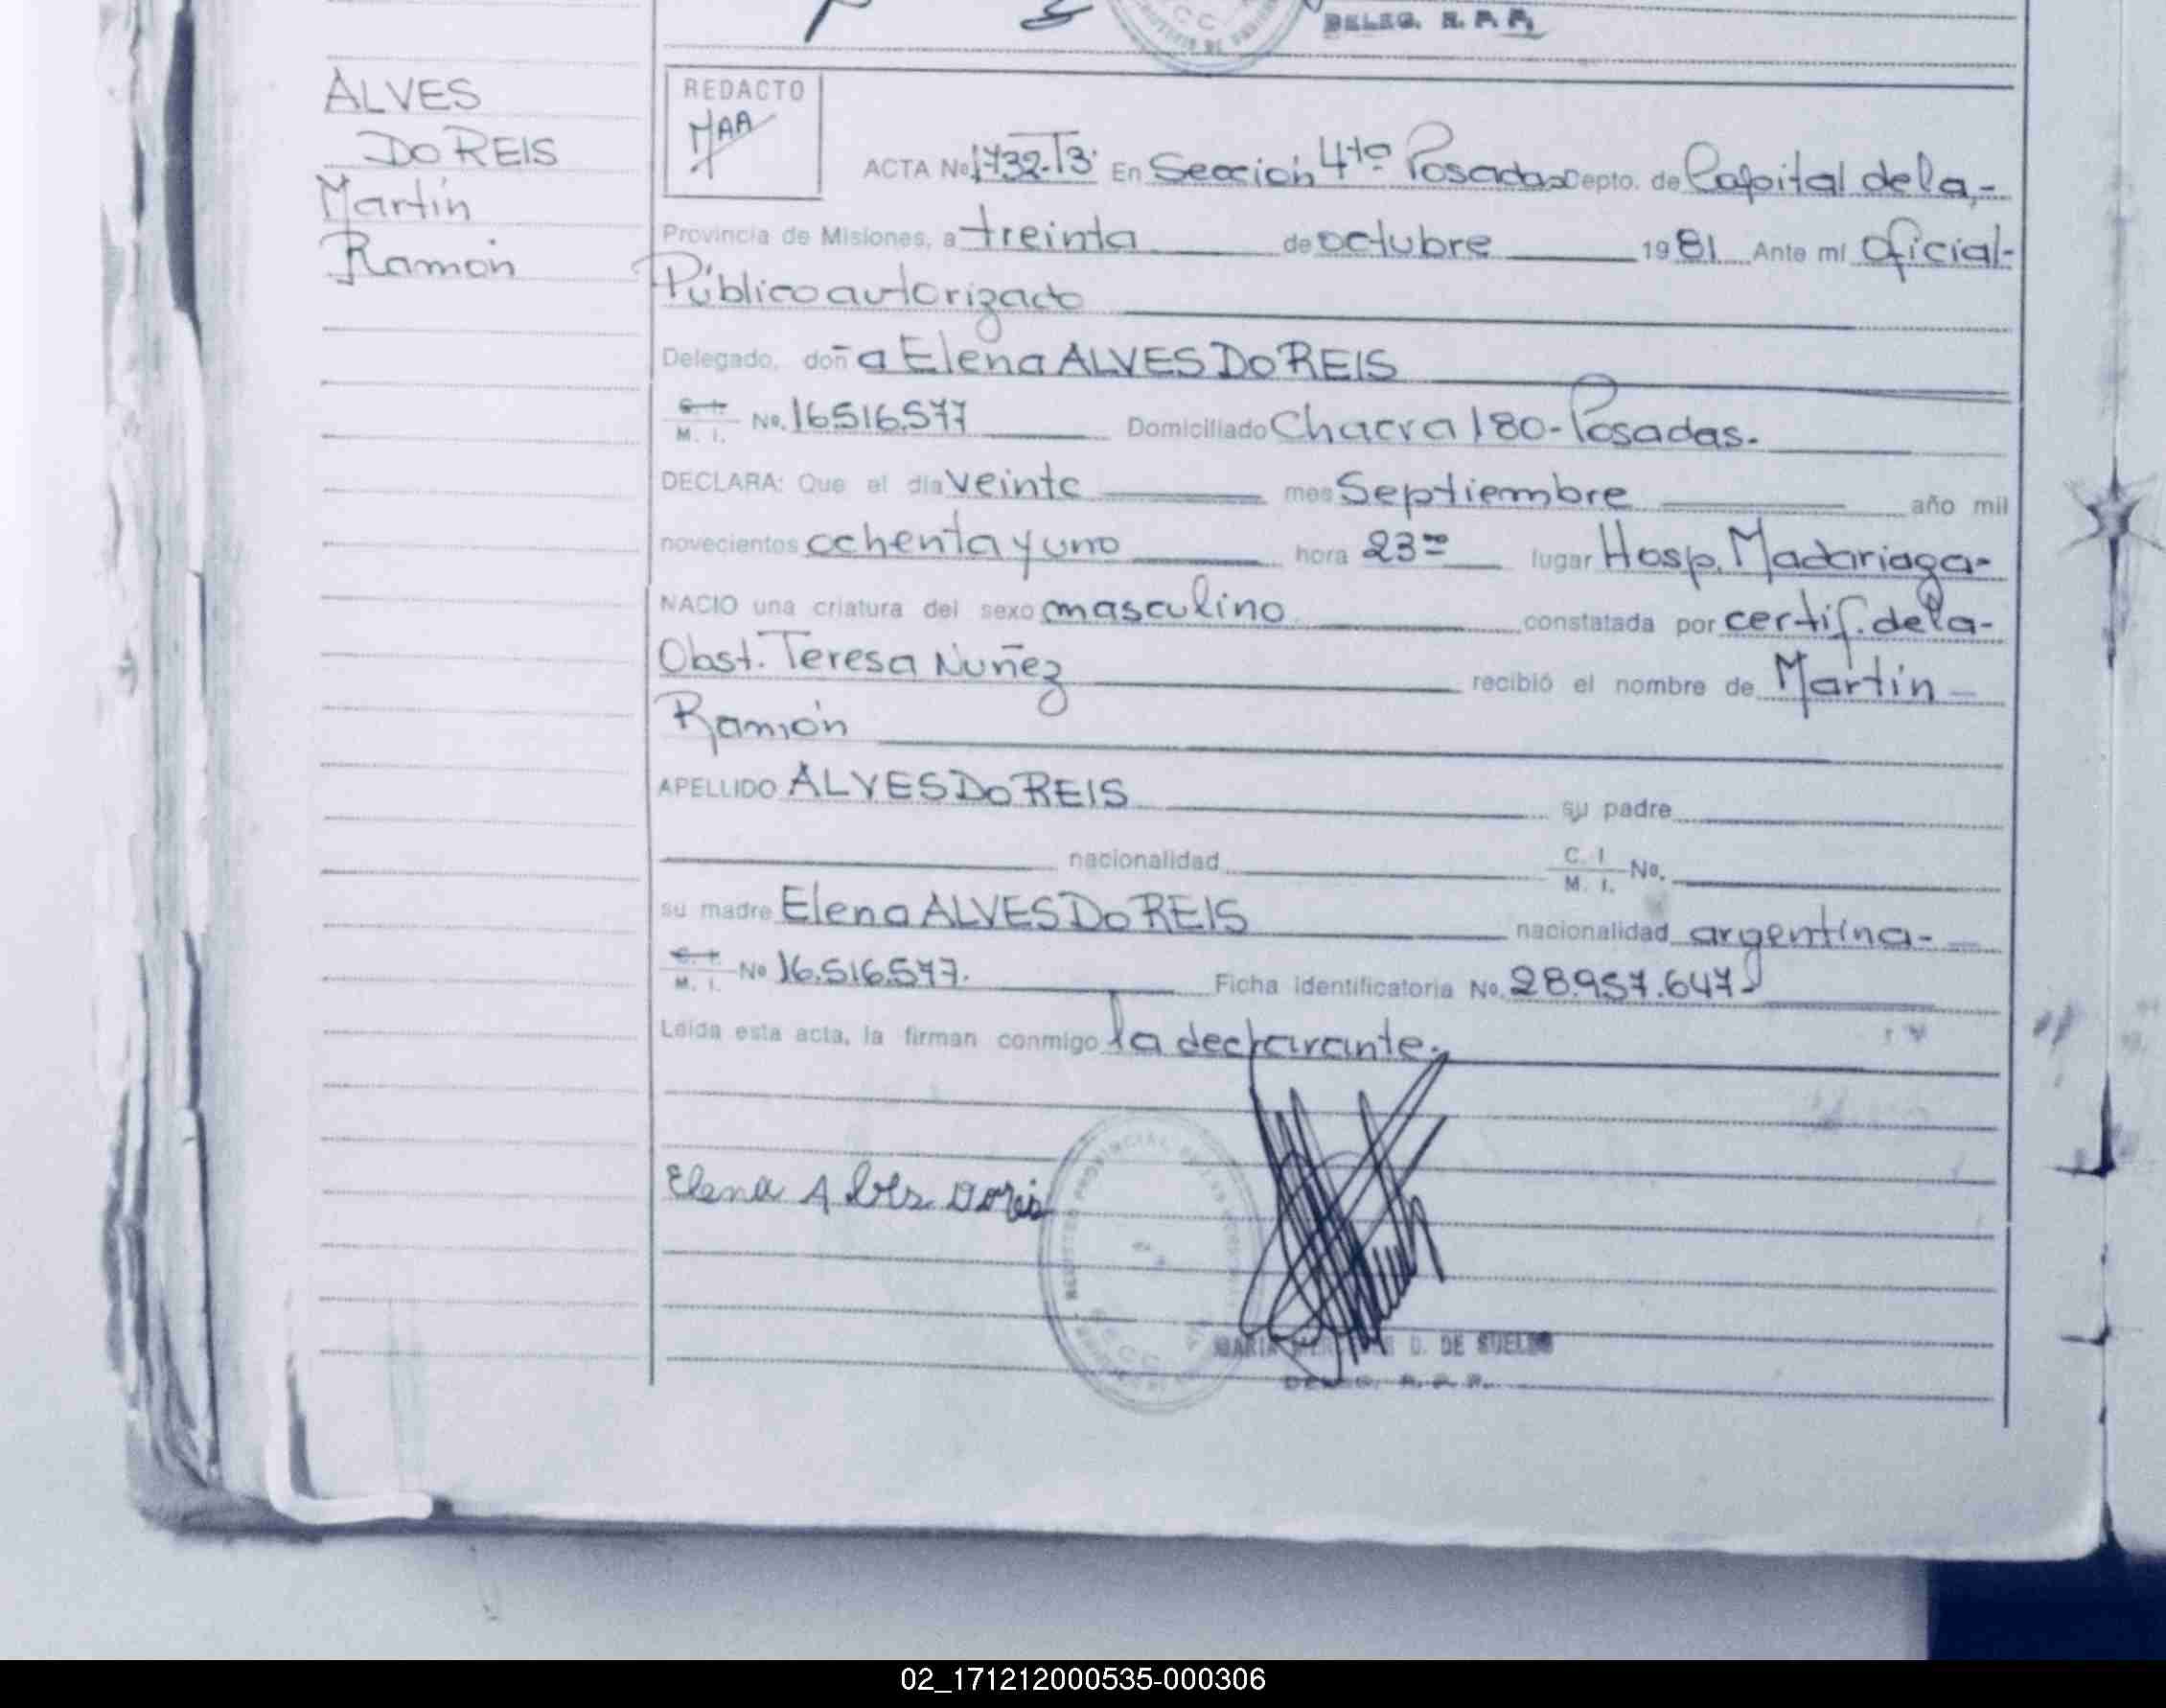 DELEG. R. P. P.
ALVES
DO REIS
Martín
Ramón
REDACTO
MAA
ACTA No 1732-T3- En Sección 4ta Posadas Depto. de Capital de la,-
Provincia de Misiones, a treinta de octubre 1981 Ante mí Oficial-
Público autorizado
Delegado, doña Elena ALVES DO REIS
C. I. M. I. No. 16516.577 Domiciliado Chacra 180-Posadas.-
DECLARA: Que el día veinte mes Septiembre año mil
novecientos ochenta y uno hora 23 00 lugar Hosp. Madariaga-
NACIO una criatura del sexo masculino constatada por certif. de la-
Obst. Teresa Nuñez recibió el nombre de Martín
Ramón
APELLIDO ALVES DO REIS su padre
nacionalidad C. I. M. I. No.
su madre Elena ALVES DO REIS nacionalidad argentina-
C. I. M. I. No 16.516.577. Ficha identificatoria No. 28.957.647
Leída esta acta, la firman conmigo la declarante.
Elena A Doris
REGISTRO PROVINCIAL DE LAS
MARIA D. DE SUELDO
DELEG. R. P. P.
02_171212000535-000306